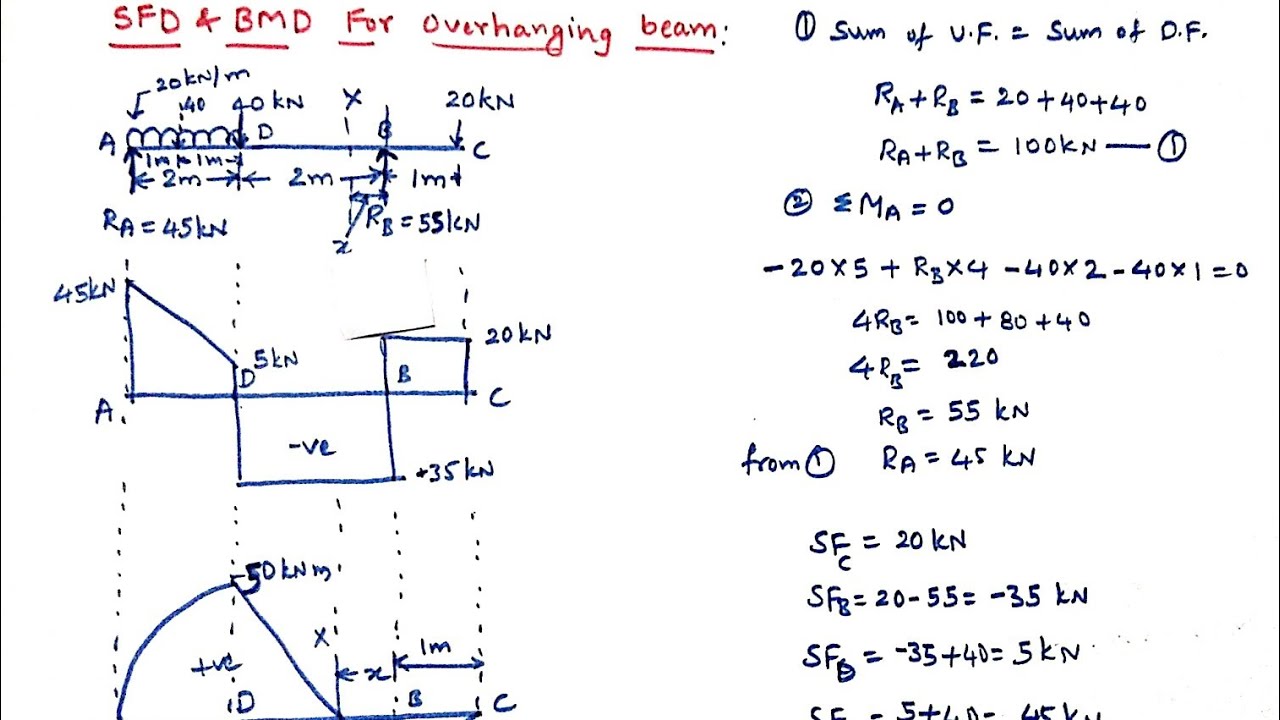 SFD & BMD For overhanging beam:
20kN/m
40
40kN
X
20kN
A
D
B
C
1m
1m
2m
2m
1m
RA = 45kN
RB = 55kN
x
45kN
5kN
D
B
20kN
A.
C
-ve
-35kN
50kNm
X
1m
+ve
x
D
B
C
① Sum of U.F. = Sum of D.F.
RA + RB = 20+40+40
RA+RB = 100kN — ①
② ΣMA = 0
-20×5 + RB×4 -40×2 -40×1 = 0
4RB = 100+80+40
4RB = 220
RB = 55 kN
from ① RA = 45 kN
SFC = 20kN
SFB = 20-55 = -35 kN
SFD = -35+40 = 5kN
5+40= 45kN